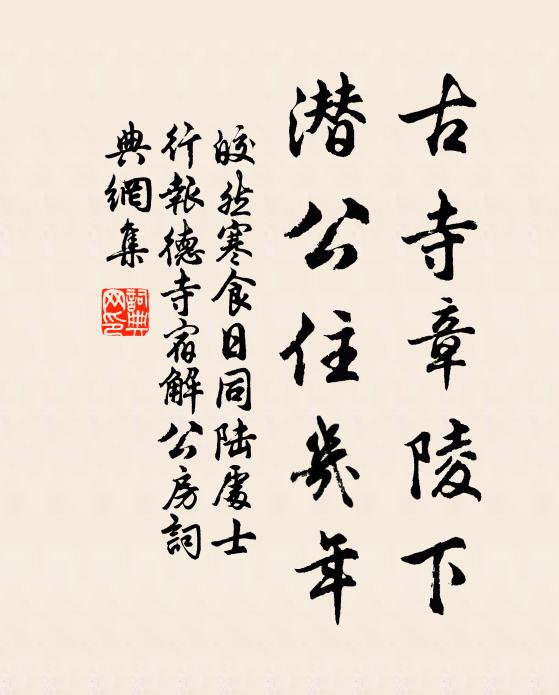 古寺章陵下
潜公住幾年
皎然寒食日同陆處士
行報德寺宿解公房詞
典網集
詞典网印